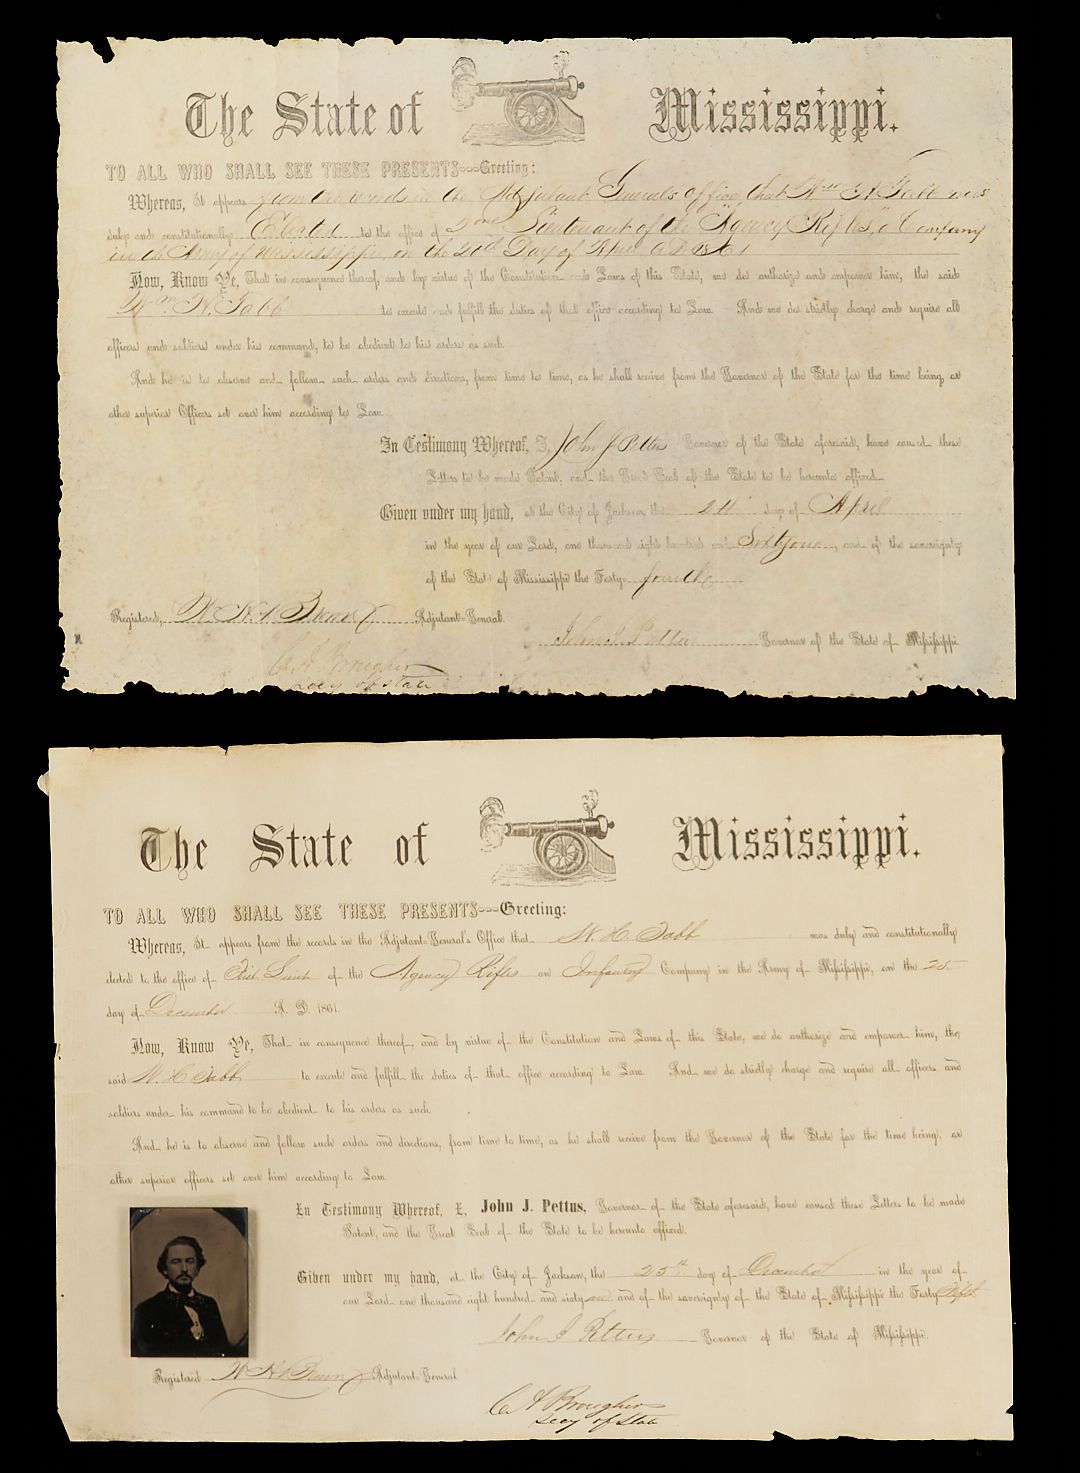 The State of Mississippi.
TO ALL WHO SHALL SEE THESE PRESENTS---Greeting:
Whereas, It appears from the records in the Adjutant Generals Office, that Wm H Tabb was
duly and constitutionally Elected to the office of 2nd Lieutenant of the "Agency Rifles," a Company
in the Army of Mississippi, on the 20th Day of April A D 1861
Now, Know Ye, That in consequence thereof, and by virtue of the Constitution and Laws of this State, we do authorize and empower him, the said
Wm. H. Tabb to execute and fulfill the duties of that office according to Law. And we do strictly charge and require all
officers and soldiers under his command, to be obedient to his orders as such.
And he is to observe and follow such orders and directions, from time to time, as he shall receive from the Governor of the State for the time being, or
other superior Officers set over him according to Law.
In Testimony Whereof, I, John J Pettus Governor of the State aforesaid, have caused these
Letters to be made Patent, and the Great Seal of the State to be hereunto affixed.
Given under my hand, at the City of Jackson, this day of April
in the year of our Lord, one thousand eight hundred and Sixty one, and of the sovereignty
of the State of Mississippi the Forty-fourth
Registered, Adjutant-General.
John J. Pettus Governor of the State of Mississippi
C. A. Brougher
Secy of State
The State of Mississippi.
TO ALL WHO SHALL SEE THESE PRESENTS---Greeting:
Whereas, It appears from the records in the Adjutant-General's Office that W. H. Tabb was duly and constitutionally
elected to the office of First Lieut of the Agency Rifles an Infantry Company in the Army of Mississippi, on the 25
day of December A. D. 1861.
Now, Know Ye, That in consequence thereof, and by virtue of the Constitution and Laws of this State, we do authorize and empower him, the
said W. H. Tabb to execute and fulfill the duties of that office according to Law. And we do strictly charge and require all officers and
soldiers under his command to be obedient to his orders as such.
And he is to observe and follow such orders and directions, from time to time, as he shall receive from the Governor of the State for the time being, or
other superior officers set over him according to Law.
In Testimony Whereof, I, John J. Pettus, Governor of the State aforesaid, have caused these Letters to be made
Patent, and the Great Seal of the State to be hereunto affixed.
Given under my hand, at the City of Jackson, the 25th day of December in the year of
our Lord one thousand eight hundred and sixty one and of the sovereignty of the State of Mississippi the Forty Fifth
John J Pettus Governor of the State of Mississippi.
Registered Adjutant-General
C A Brougher
Secy of State